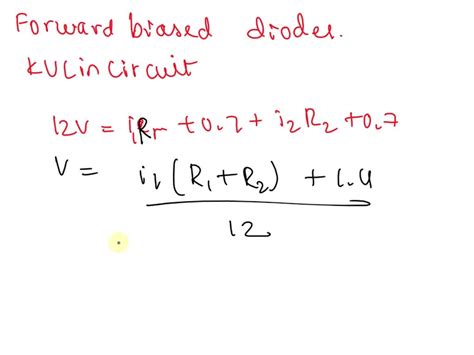 Forward biased diodes.
KVL in Circuit
12V = i₁R₁ + 0.7 + i₂R₂ + 0.7
V = i₁(R₁+R₂) + 1.4
12